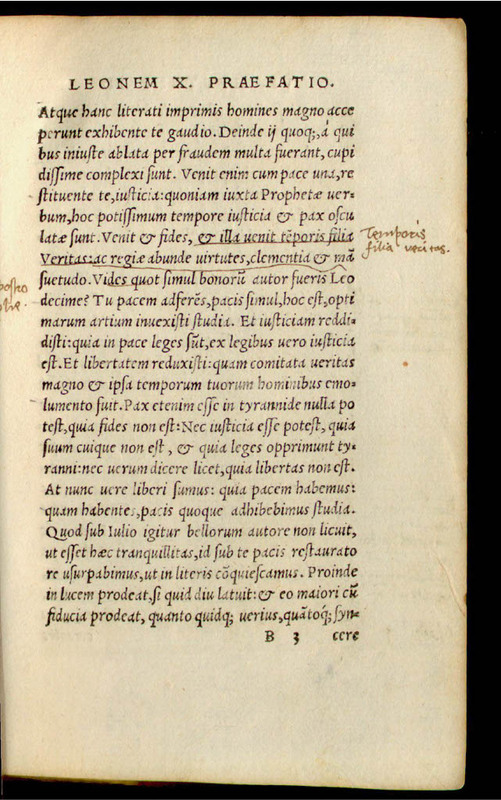 LEONEM X. PRAEFATIO.
Atque hanc literati imprimis homines magno acce
perunt exhibente te gaudio. Deinde ij quoq;, à qui
bus iniuste ablata per fraudem multa fuerant, cupi
dissime complexi sunt. Venit enim cum pace una, re
stituente te, iusticia: quoniam iuxta Prophetæ ver-
bum, hoc potissimum tempore iusticia & pax oscu
latæ sunt. Venit & fides, & illa venit tēporis filia
Temporis
filia veritas.
Veritas: ac regiæ abunde virtutes, clementia & mã
suetudo. Vides quot simul bonorũ autor fueris Leo
decime? Tu pacem adferēs, pacis simul, hoc est, opti
marum artium inuexisti studia. Et iusticiam reddi-
disti: quia in pace leges sũt, ex legibus vero iusticia
est. Et libertatem reduxisti: quam comitata veritas
magno & ipsa temporum tuorum hominibus emo-
lumento fuit. Pax etenim esse in tyrannide nulla po
test, quia fides non est: Nec iusticia esse potest, quia
suum cuique non est, & quia leges opprimunt ty-
ranni: nec uerum dicere licet, quia libertas non est.
At nunc uere liberi sumus: quia pacem habemus:
quam habentes, pacis quoque adhibebimus studia.
Quod sub Iulio igitur bellorum autore non licuit,
ut esset hæc tranquillitas, id sub te pacis restaurato
re usurpabimus, ut in literis cōquiescamus. Proinde
in lucem prodeat, si quid diu latuit: & eo maiori cũ
fiducia prodeat, quanto quidq; verius, quãtoq; syn-
B 3 cere